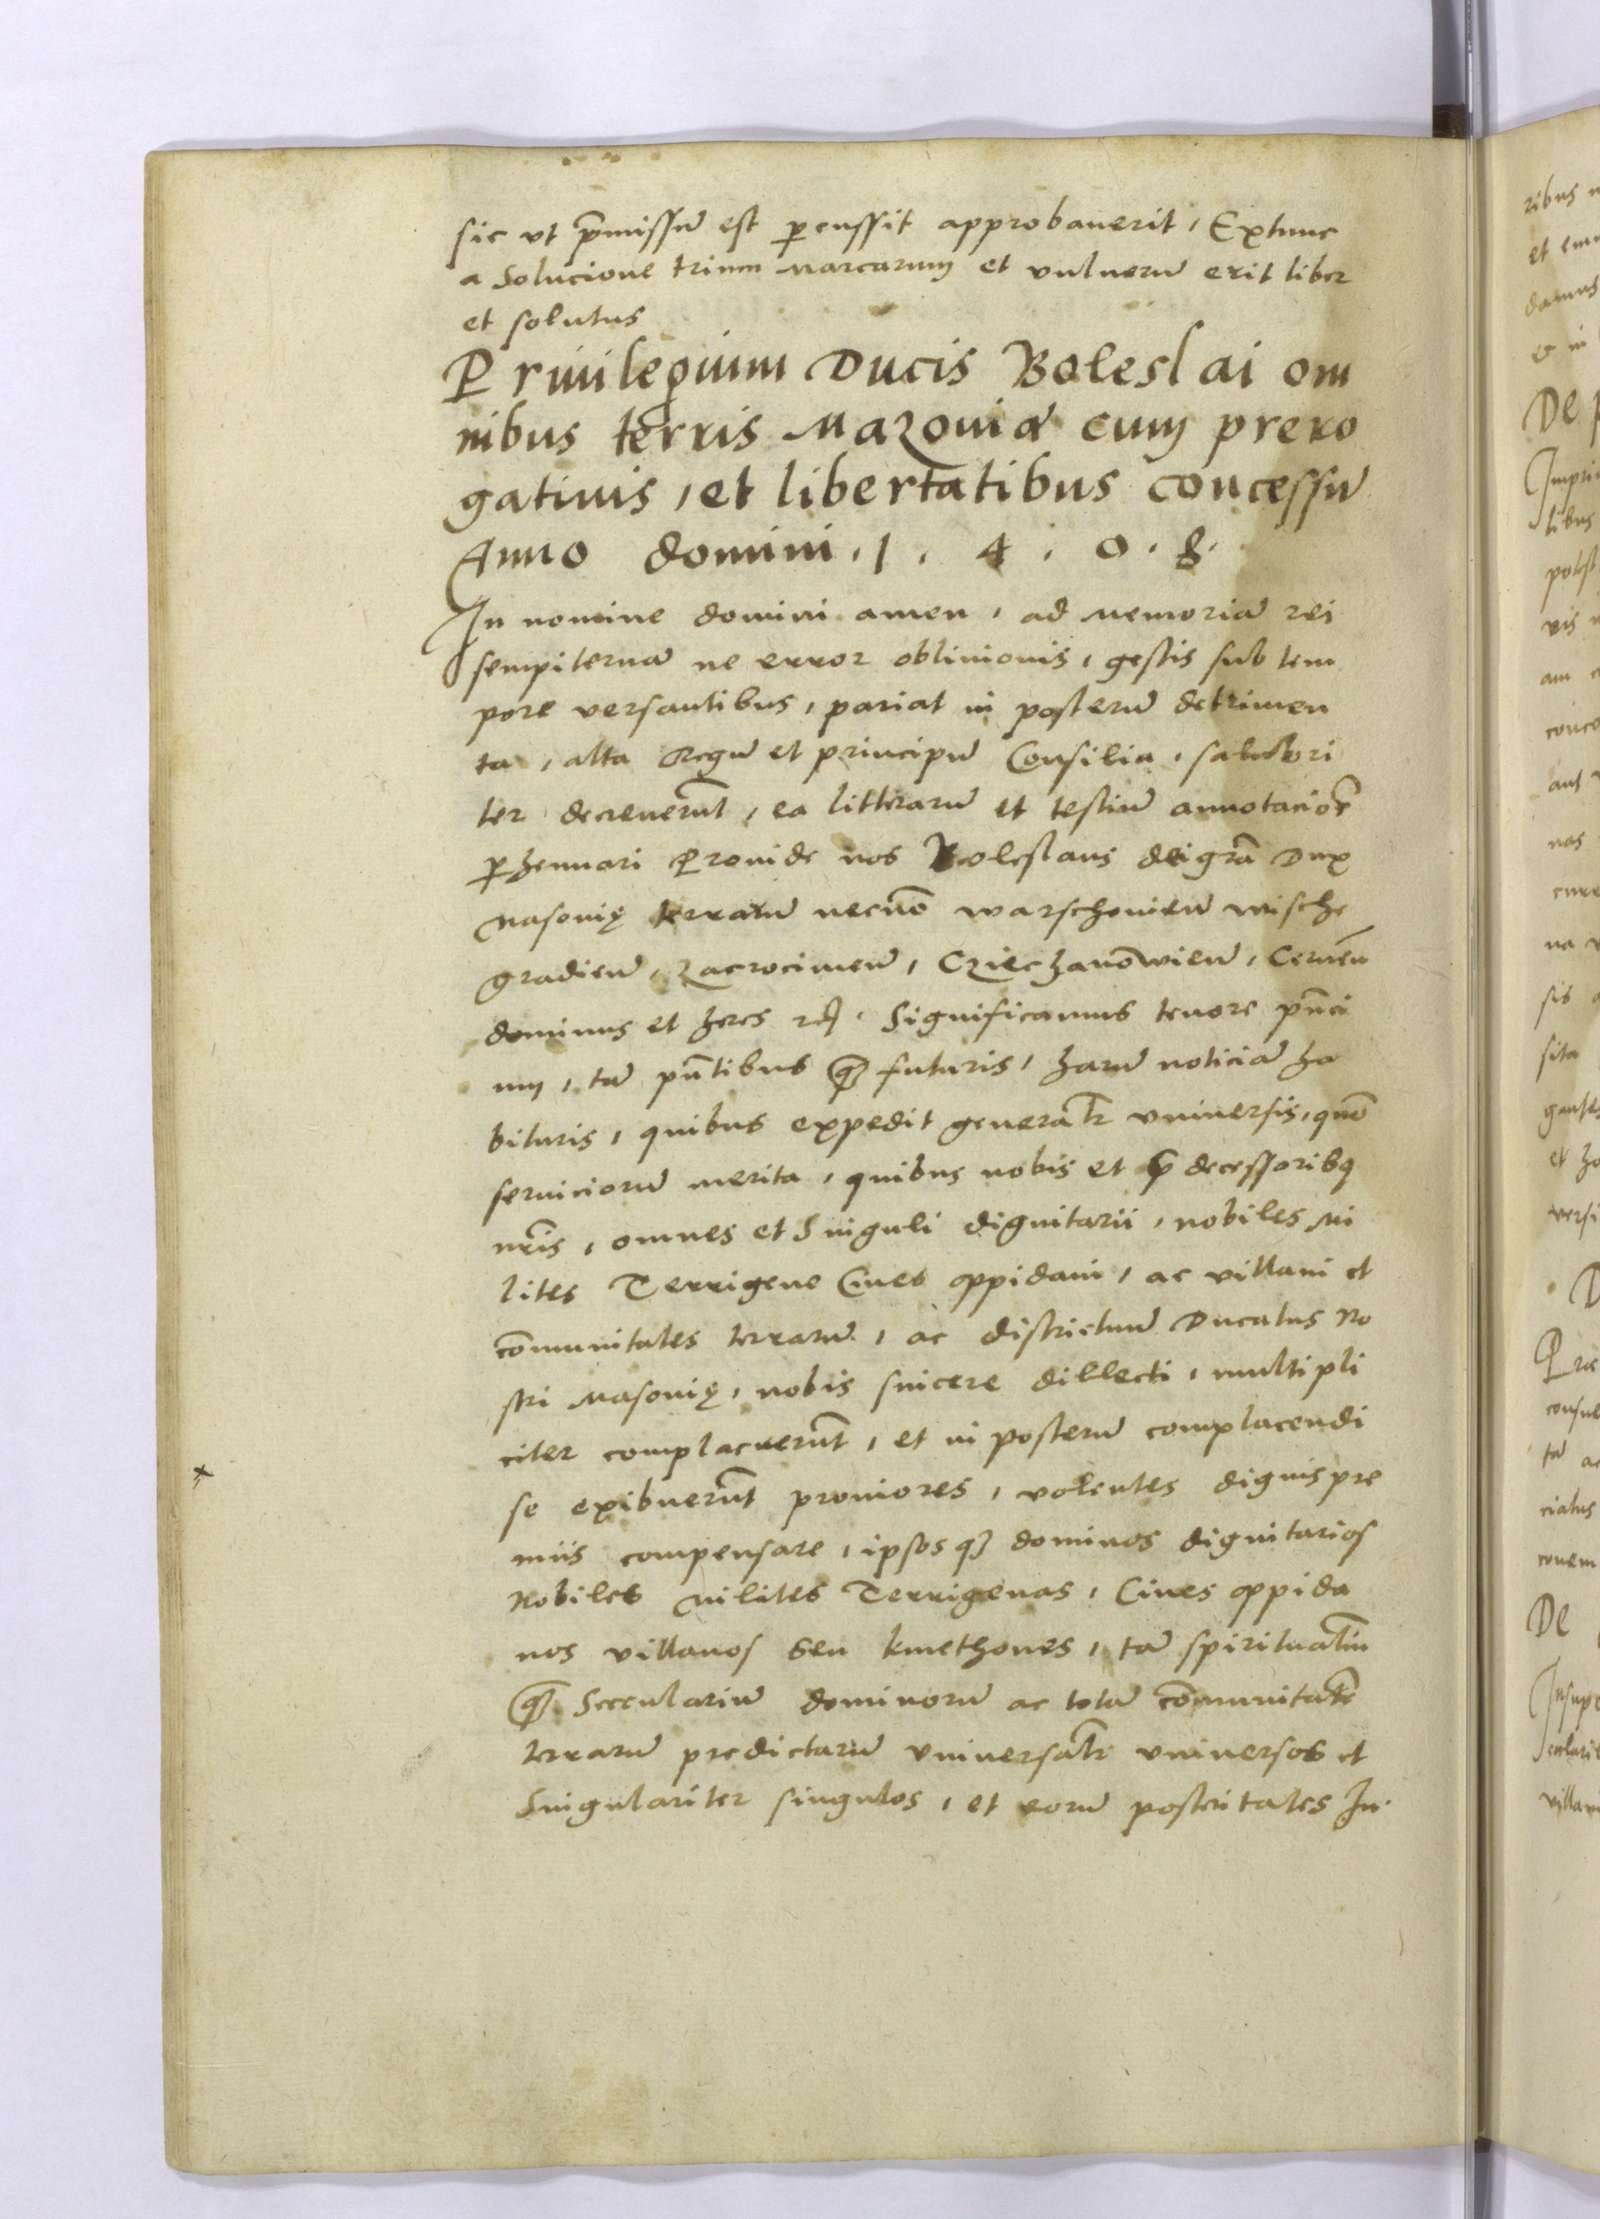 sic vt p̄missū est ꝑcussit approbauerit, Extunc
a Solucione trium Marcarum et vulnerū erit liber
et solutus
Priuilegium Ducis Boleslai om
nibus terris Mazouiæ cum prero
gatiuis, et libertatibus concessū
Anno domini. 1. 4. 0. 8.
In nomine domini amen, ad memoriā rei
sempiternā ne error obliuionis, gestis sub tem
pore versantibus, pariat in posterū detrimen
ta, alta Regū et principū Consilia, salubri
ter decreuerūt, ea litterarū et testiū annotaciōe
ꝑhennari Prouide nos Boleslaus dei grā Dux
Masouię terrarū necnō warschouieñ wische
gradieñ, Zacrocimeñ, Cziechanōwieñ, Cerneñ
dominus et heres
Significamus tenore pñci
um, tā pñtibus q̄ futuris, harū noticiā ha
bituris, quibus expedit generalr̄ vniuersis, quō
seruiciorū merita, quibus nobis et p̄decessoribꝫ
nr̄is, omnes et Singuli dignitarii, nobiles Mi
lites Terrigene Ciues oppidani, ac villani et
cōmunitates terrarū, ac districtuū Ducatus No
stri Masouię, nobis sincere dillecti, multipli
citer complacuerūt, et in posterū complacendi
se exibuerūt proniores, volentes dignis pre
miis compensare, ipsosqꝫ dominos dignitarios
Nobiles Milites Terrigenas, Ciues oppida
nos villanos seu kmethones, tā spiritualiū
q̄ Seculariū dominorū ac totā cōmunitatē
terrarū predictarū vniuersalr̄ vniuersos et
Singulariter singulos, et eorū posteritates In